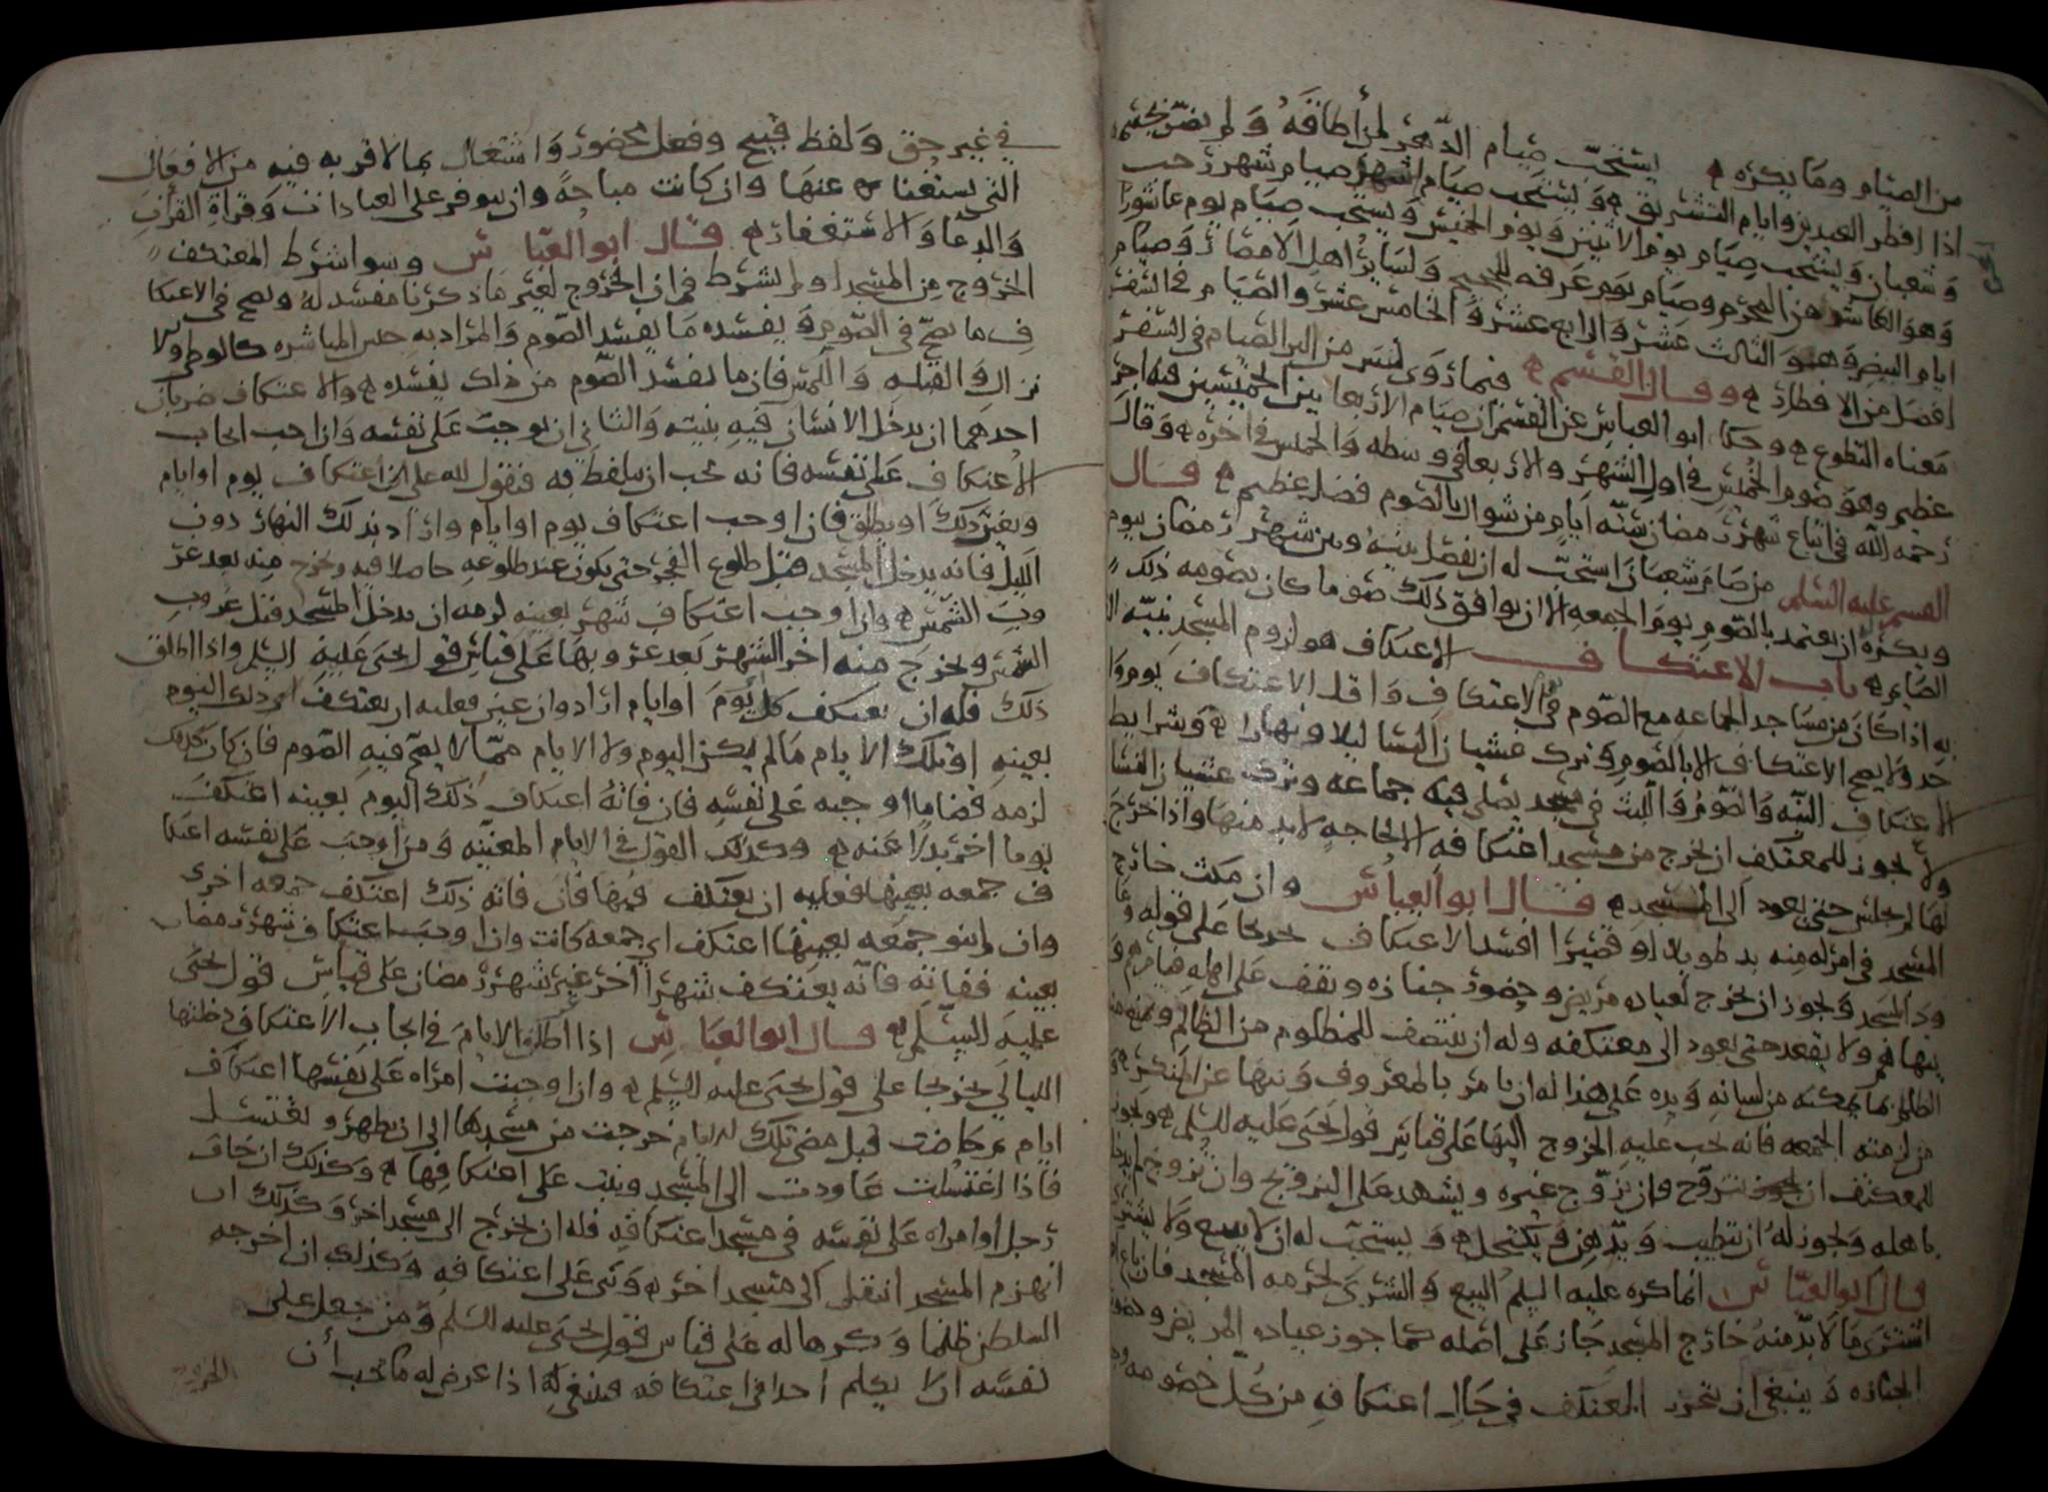 من الصيام وما يكره يستحب صيام الدهر لمن أطاقه ولم يضر بجسمه
اذا افطر العيدين وايام التشريق ويستحب صيام اشهر صيام شهر رجب
وشعبان ويستحب صيام يوم الاثنين ويوم الخميس ويستحب صيام يوم عاشورا
وهو العاشر من المحرم وصيام يوم عرفه للحجيج ولساير اهل الامصار وصيام
ايام البيض وهو الثالث عشر والرابع عشر والخامس عشر والصيام في السفر
افضل من الافطار وقال القسم فيما روى ليس من البر الصيام في السفر
معناه التطوع وحكا ابو العباس عن القسم ان صيام الاربعا بين الخميسين فيه اجر
عظيم وهو صوم الخميس في اول الشهر والاربعا في وسطه والخميس في اخره وقال
رحمه الله في اتباع شهر رمضان ستة ايام من شوال بالصوم فضل عظيم قال
القسم عليه السلم من صام شعبان استحب له ان يفصل بينه وبين شهر رمضان بيوم
ويكره ان يعتمد بالصوم يوم الجمعه الا ان يوافق ذلك صوم ما كان يصومه ذلك
الصايم باب الاعتكاف الاعتكاف هو لزوم المسجد بنيه
به اذا كان من مساجد الجماعه مع الصوم في الاعتكاف واقل الاعتكاف يوم
حد ولا يصح الاعتكاف الا بالصوم وترك غشيان النسا ليلا ونهارا وشرايط
الاعتكاف النيه والصوم واللبث في مسجد يصلى فيه جماعه وترك غشيان النسا
ولا يجوز للمعتكف ان يخرج من مسجد اعتكافه الا لحاجه لا بد منها واذا خرج
لها لم يجلس حتى يعود الى المسجد قال ابو العباس وان مكث خارج
المسجد في امر له منه بد طويلا او قصيرا افسد الاعتكاف تخريجا على قوله
المسجد ويجوز ان يخرج لعياده مريض وحضور جنازه ويقف على اهله
ينهاهم ولا يقعد حتى يعود الى معتكفه وله ان ينتصف للمظلوم من الظالم
الظالم بما يمكنه من لسانه ويده على هذا له ان يامر بالمعروف وينها عن المنكر
من لزمته الجمعه فانه يجب عليه الخروج اليها على قياس قول يحيى عليه السلم ويجوز
للمعتكف ان يتزوج وان يزوج غيره ويشهد على التزويج وان تزوج لم يدخل
باهله ويجوز له ان يتطيب ويدهن ويكتحل ويستحب له ان لا يبيع ولا يشترى
قال ابو العباس انما كره عليه السلم البيع والشرى لحرمه المسجد فان
اشترى ما لا بد منه خارج المسجد جاز على اصله كما جوز عياده المريض وحضور
الجنازه وينبغي ان يتحرز المعتكف في حال اعتكافه من كل خصومه
في غير حق ولفظ قبيح وفعل محضور واشتغال بما لا قربه فيه من الافعال
التي يستغنا عنها وان كانت مباحه وان يتوفر على العبادات وقراة القرآن
والدعا والاستغفار قال ابو العباس وسوا شرط المعتكف
الخروج من المسجد او لم يشرط فان الخروج لغير ما ذكرنا مفسد له ويصح في الاعتكا
ف ما يصح في الصوم ويفسده ما يفسد الصوم والمراد به جنس المباشره كالوطي والا
نزال والقبله واللمس فان ما يفسد الصوم من ذلك يفسده والاعتكاف ضربان
احدهما ان يدخل الانسان فيه بنيته والثاني ان يوجبه على نفسه وان احب ايجاب
الاعتكاف على نفسه فانه يجب ان يتلفظ به فيقول لله علي اعتكاف يوم او ايام
ويعين ذلك او يطلق فان اوجب اعتكاف يوم او ايام واراد بذلك النهار دون
الليل فانه يدخل المسجد قبل طلوع الفجر حتى يكون عند طلوعه حاصلا فيه ويخرج منه بعد غر
وب الشمس واذا وجب اعتكاف شهر بعينه لزمه ان يدخل المسجد قبل غروب
الشمس ويخرج منه اخر الشهر بعد غروبها على قياس قول يحيى عليه السلم واذا اطلق
ذلك فله ان يعتكف كل يوم او ايام اراد وان عين فعليه ان يعتكف ذلك اليوم
بعينه او تلك الايام ما لم يكن اليوم ولا الايام مما لا يصح فيه الصوم فان كان كذلك
لزمه قضا ما اوجبه على نفسه فان فاته اعتكاف ذلك اليوم بعينه اعتكف
يوما اخر بدلا عنه وكذلك القول في الايام المعينه ومن اوجب على نفسه اعتكا
ف جمعه بعينها فعليه ان يعتكف فيها فان فاته ذلك اعتكف جمعه اخرى
وان لم ينو جمعه بعينها اعتكف اي جمعه كانت واذا اوجب اعتكاف شهر رمضان
بعينه ففاته فانه يعتكف شهرا اخر غير شهر رمضان على قياس قول يحيى
عليه السلم قال ابو العباس اذا اطلق الايام في ايجاب الاعتكاف دخلتها
الليالي تخريجا على قول يحيى عليه السلم واذا وجبت امراه على نفسها اعتكاف
ايام ثم حاضت قبل مضي تلك الايام خرجت من مسجدها الى ان تطهر وتغتسل
فاذا اغتسلت عاودت الى المسجد وبنت على اعتكافها وكذلك ان خاف
رجل او امراه على نفسه في مسجد اعتكافه فله ان يخرج الى مسجد اخر وكذلك ان
انهزم المسجد انتقل الى مسجد اخر وبنى على اعتكافه وكذلك ان اخرجه
السلطان ظلما وكرها له على قياس قول يحيى عليه السلم ومن جعل على
نفسه ان لا يكلم احدا في اعتكافه فينبغي له اذا عرض له ما يجب أن